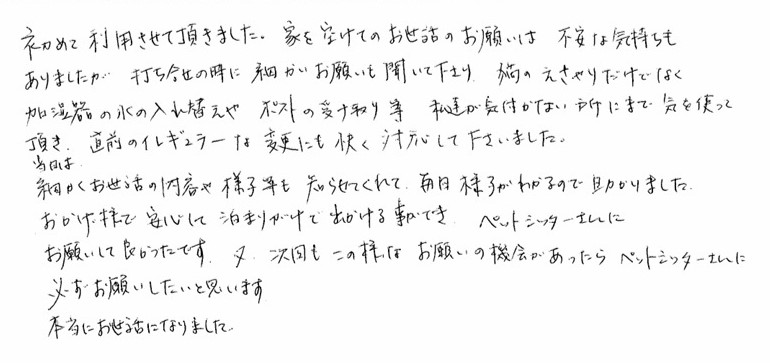 初めて利用させて頂きました。家を空けてのお世話のお願いは 不安な気持ちも
ありましたが 打ち合せの時に細かいお願いも聞いて下さり 猫のえさやりだけでなく
加湿器の水の入れ替えや ポストの受け取り等 私達が気付かない所にまで気を使って
頂き、直前のイレギュラーな変更にも快く対応して下さいました。
当日は
細かくお世話の内容や様子等も知らせてくれて、毎日様子がわかるので助かりました。
おかげ様で安心して泊まりがけで出かける事ができ、ペットシッターさんに
お願いして良かったです。又、次回もこの様なお願いの機会があったらペットシッターさんに
必ずお願いしたいと思います
本当にお世話になりました。